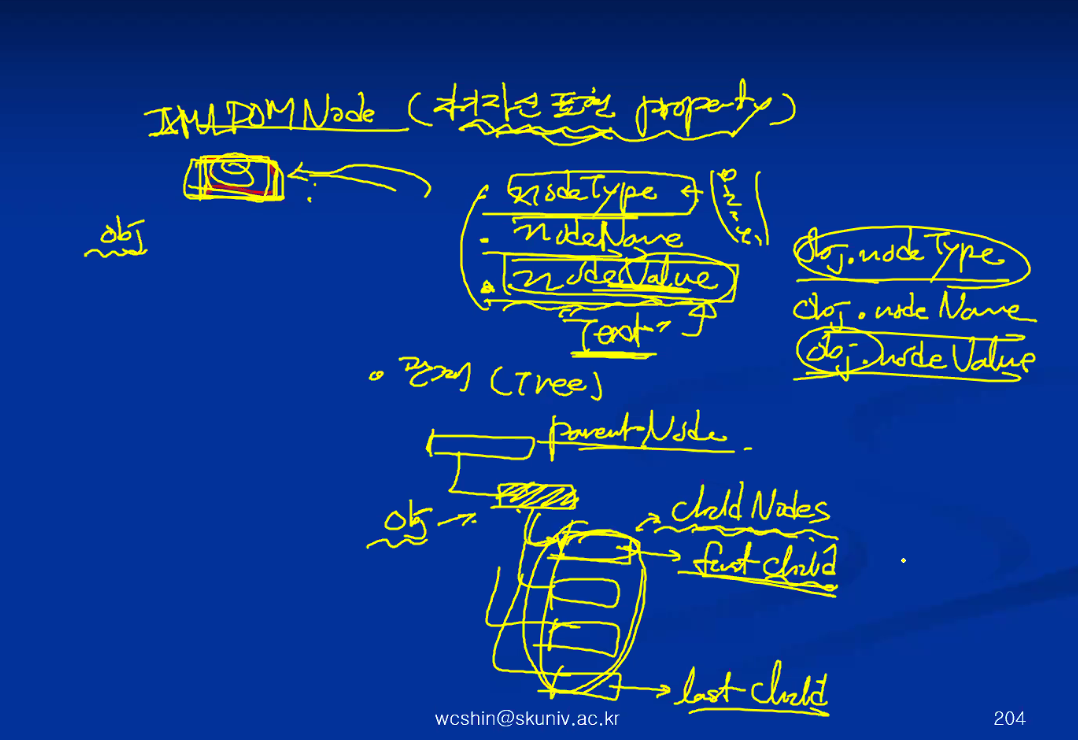 XML DOM Node (자기자신 표현 property)
nodeType
nodeName
nodeValue
"Text"
obj
obj.nodeType
obj.nodeName
obj.nodeValue
관계 (Tree)
parentNode
obj
childNodes
firstChild
lastChild
wcshin@skuniv.ac.kr
204